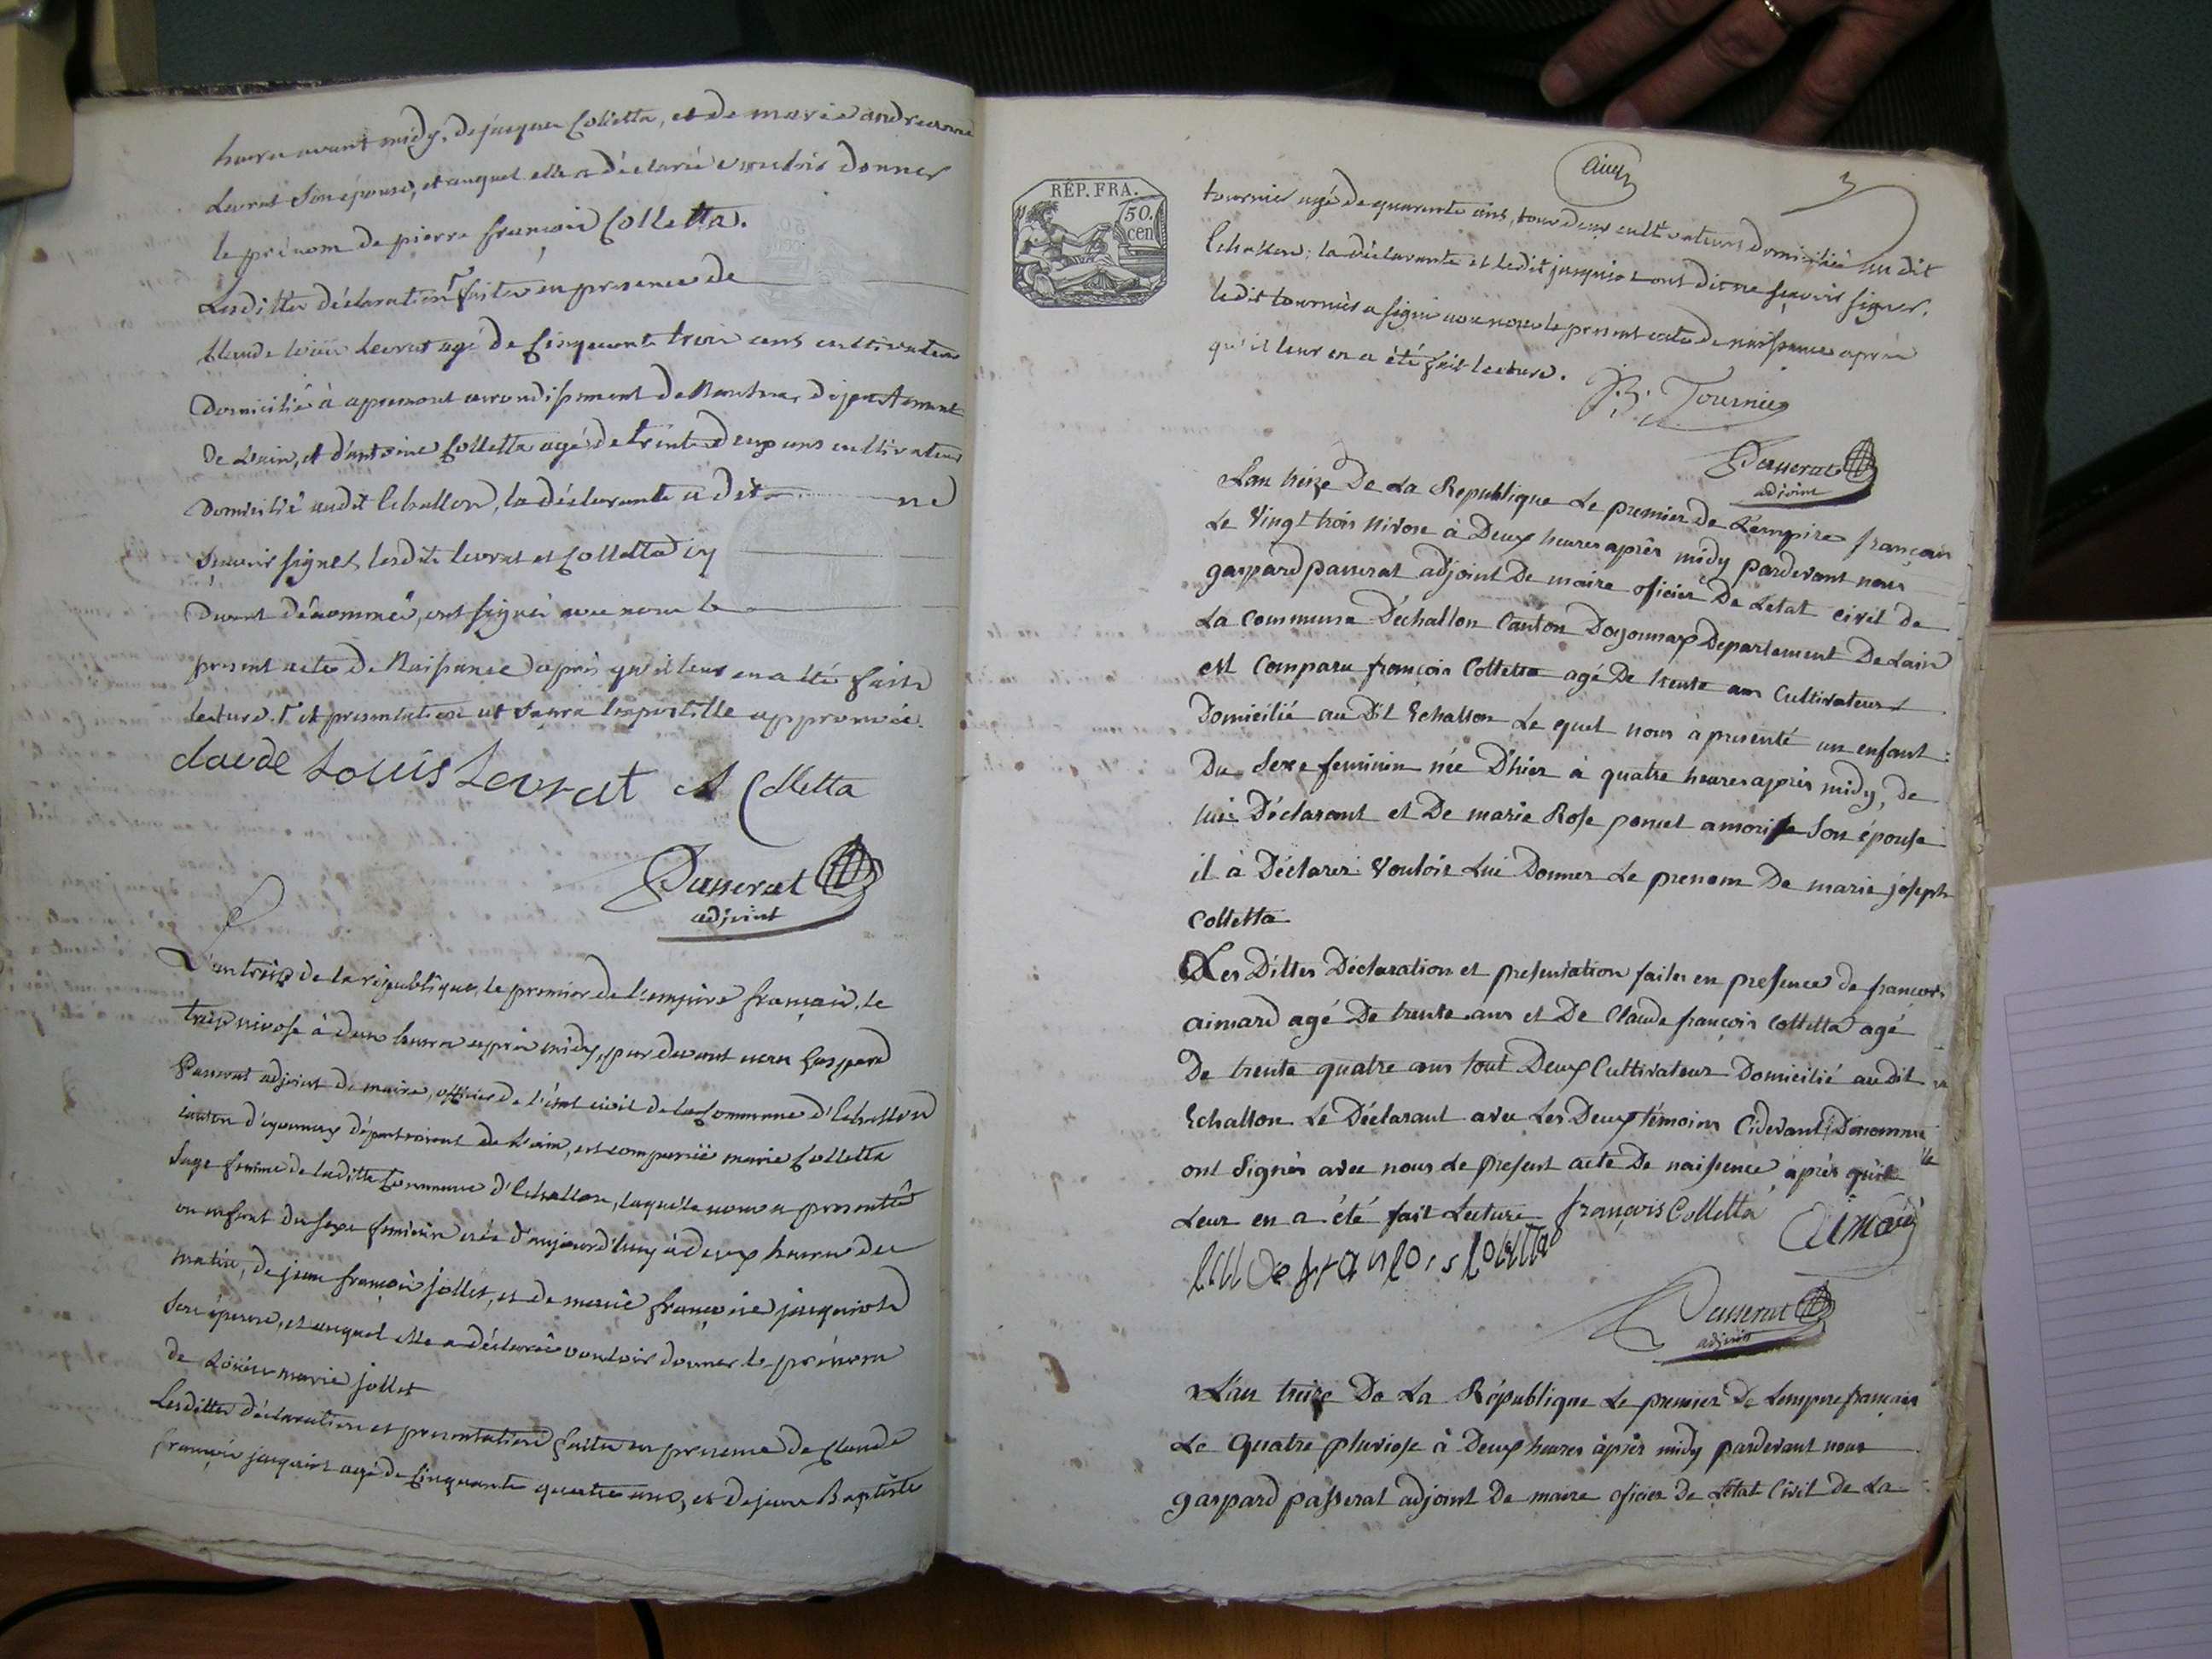 heures avant midy, de jacques Colletta, et de marie andreanne
Levrat son épouse, et auquel elle a déclaré vouloir donner
le prénom de pierre françois Colletta.
Lesdittes déclaration faites en presence de
Claude louis Levrat agé de Cinquante trois ans cultivateur
domicilié à apremont arrondissement de Nantua, département
de L'ain, et d'antoine Colletta agé de trente deux ans cultivateur
domicilié audit Echallon, la déclarante a dit ne
sçavoir signer, lesdits levrat et Colletta cy
devant dénommés, ont signé avec nous le
present acte de Naissance après qu'il leur en a été fait
lecture. et presentation et sera l'apostille approuvée.
claude Louis Levrat A Colletta
Passerat
adjoint
L'an treize de la république, le premier de l'empire français, le
treize nivose à deux heures après midy, par devant nous Gaspard
Passerat adjoint de maire, officier de l'état civil de la Commune d'Echallon
canton d'oyonnax département de L'ain, est comparüe marie Colletta
Sage femme de laditte Commune d'Echallon, laquelle nous a presenté
un enfant du sexe feminin née d'aujourd'huy à deux heures du
matin, de jean françois jollet, et de marie françoise jacquiot
son épouse, et auquel elle a déclaré vouloir donner le prénom
de Louise marie jollet
Lesdittes déclaration et presentation faites en presence de Claude
françois jacquiot agé de Cinquante quatre ans, et de jean Baptiste
RÉP. FRA.
50.
cen
cinq
tournier agé de quarante ans, tous deux cultivateurs domiciliés au dit
Echallon; la déclarante et ledit jacquiot ont dit ne sçavoir signer,
ledit tournier a signé avec nous le present acte de naissance après
qu'il leur en a été fait lecture.
J.B. Tournier
Passerat
adjoint
L'an treize De La Republique Le premier De L'empire français
Le Vingt trois Nivose à Deux heures après midy pardevant nous
gaspard passerat adjoint De maire oficier De Letat civil de
La Commune D'échallon Canton Doyonnax Departement De Lain
est Comparu françois Colletta agé De trente ans Cultivateur
Domicilié au Dit Echallon Le quel nous à presenté un enfant
Du Sexe feminin née D'hier à quatre heures après midy, de
lui Déclarant et De marie Rose poncet amorise Son épouse
il à Déclarer Vouloir Lui Donner Le prenom De marie joseph
Colletta
Les Dittes Déclaration et presentation faites en presence de francois
aimard agé De trente ans et De Claude françois Colletta agé
De trente quatre ans tout Deux Cultivateur Domicilié audit
Echallon Le Déclarant avec Les Deux témoins Cidevant Dénommé
ont Signés avec nous Le present acte De naissence après qu'il
Leur en a été fait Lecture françois Colletta Aimard
Claude francois Colletta
Passerat
adjoint
L'an treize De La République Le premier De Lempire français
Le Quatre pluviose à Deux heures après midy pardevant nous
gaspard passerat adjoint De maire oficier De Létat Civil De La